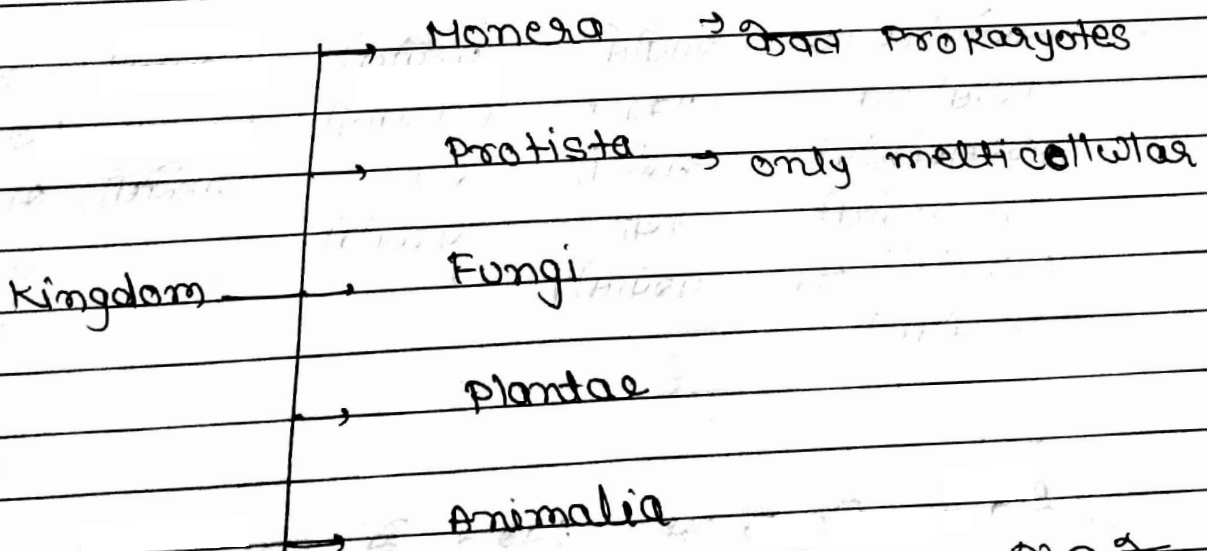 Monera → केवल Prokaryotes
Protista → only melticellular
Kingdom → Fungi
Plantae
Animalia